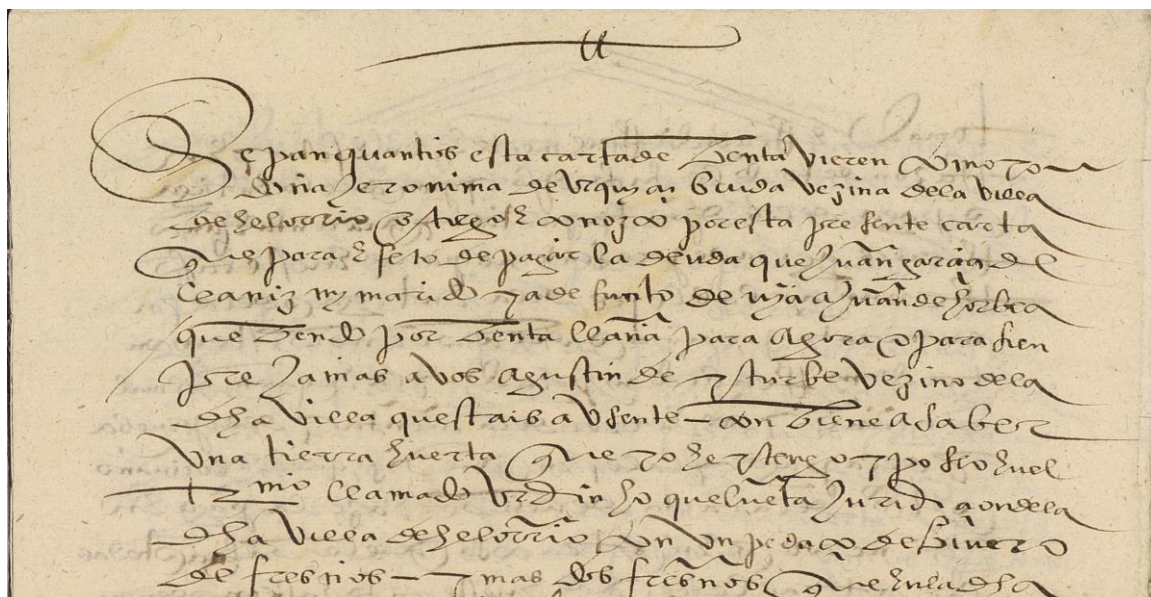 Sepan quantos esta carta de venta vieren como yo
doña Jeronima de Urquiça biuda vezina de la villa
de helorrio otorgo e conozco por esta presente carta
que para efeto de pagar la deuda que Juan garcia de
leaniz my marido ya defunto devia a Juan de
que vendo por venta llana para agora e para sien
pre jamas a vos agustin de yturbe vezino de la
dha villa questais ausente conbiene a saber
una tierra huerta que yo he y tengo y poseo en el
termio llamado urdinso questa en la juridicion de la
dha villa de helorrio con un pedaço de bibero
de fresnos y mas dos fresnos que en la dha